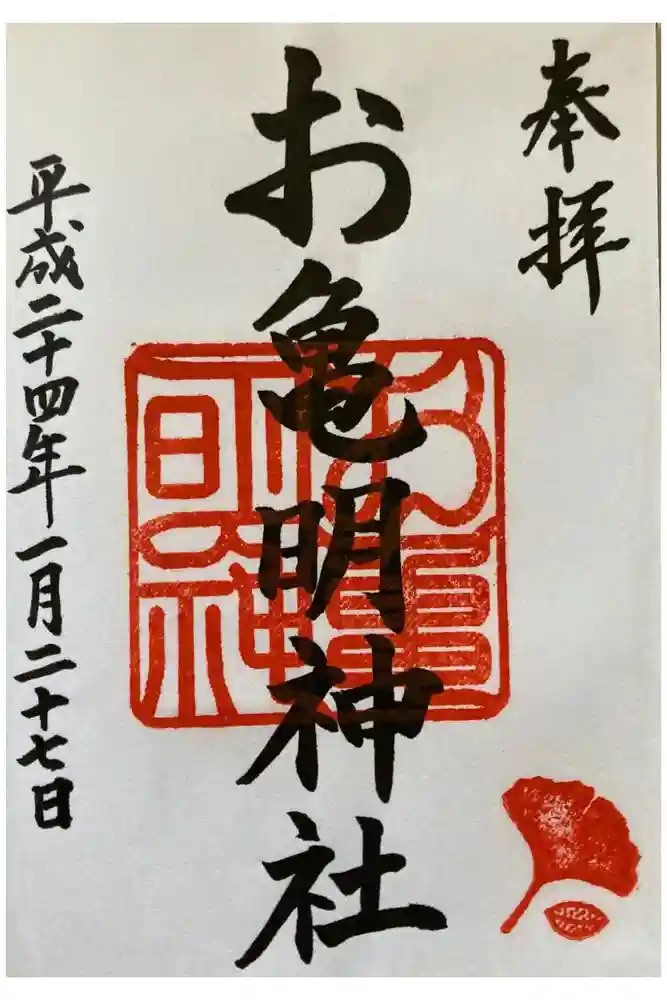 奉拝
お亀明神社
お亀明神
平成二十四年一月二十七日